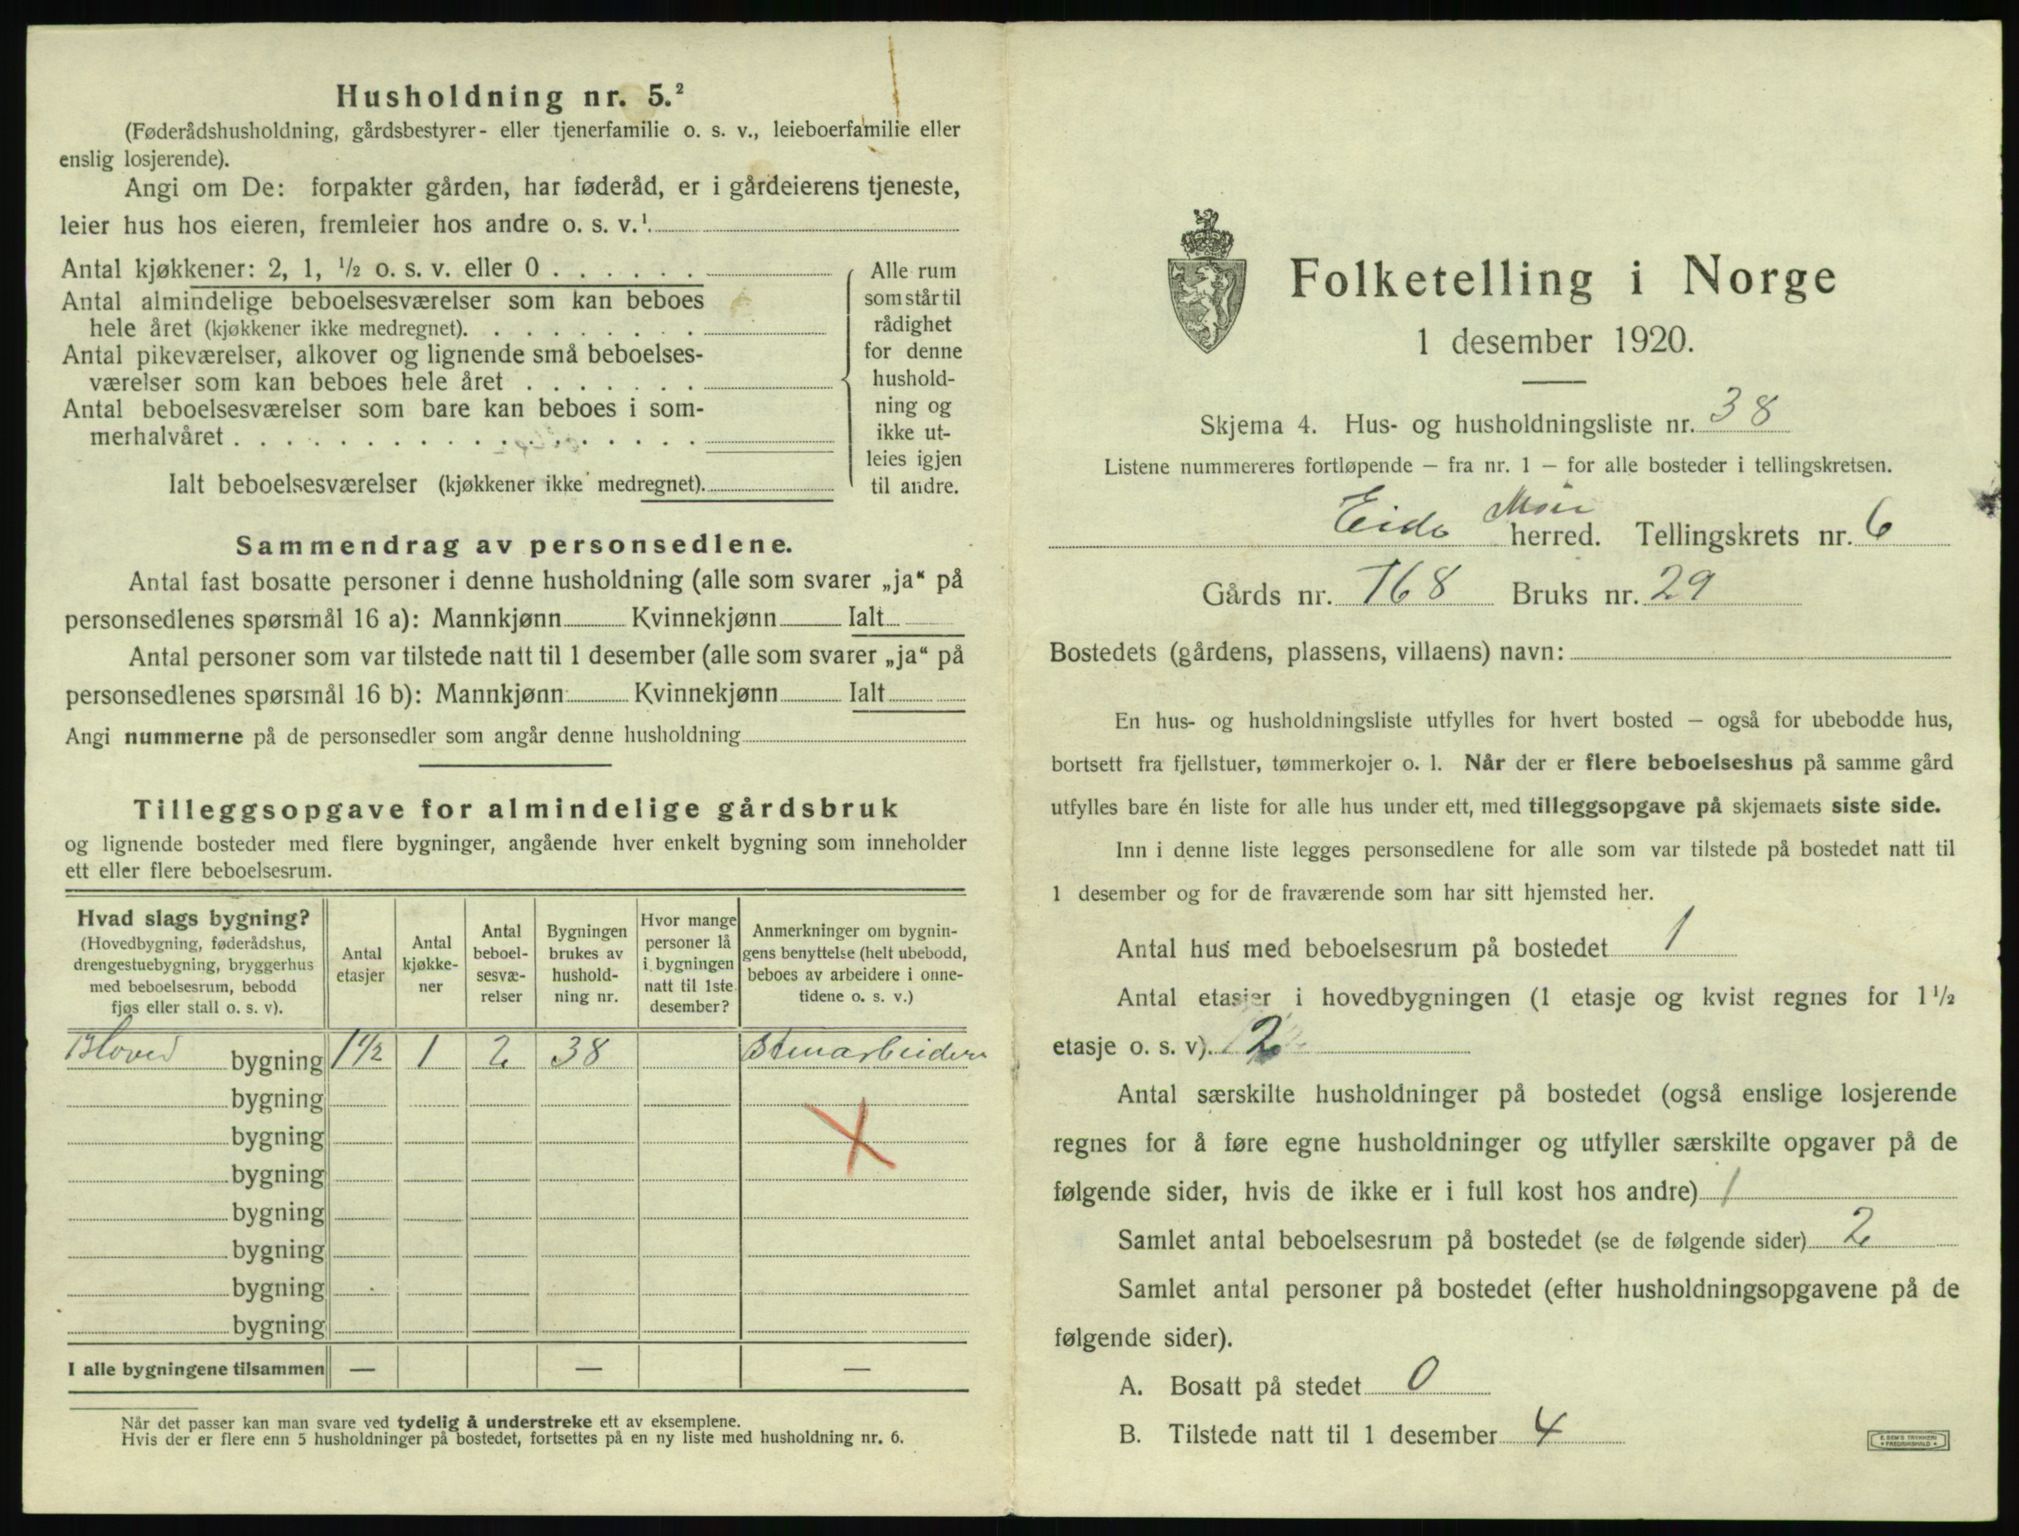 Husholdning nr. 5.²
(Føderådshusholdning, gårdsbestyrer- eller tjenerfamilie o. s. v., leieboerfamilie eller
enslig losjerende).
Angi om De: forpakter gården, har føderåd, er i gårdeierens tjeneste,
leier hus hos eieren, fremleier hos andre o. s. v.¹
Antal kjøkkener: 2, 1, ½ o. s. v. eller 0
Antal almindelige beboelsesværelser som kan beboes
hele året (kjøkkener ikke medregnet).
Antal pikeværelser, alkover og lignende små beboelses-
værelser som kan beboes hele året
Antal beboelsesværelser som bare kan beboes i som-
merhalvåret
Ialt beboelsesværelser (kjøkkener ikke medregnet).
Alle rum
som står til
rådighet
for denne
hushold-
ning og
ikke ut-
leies igjen
til andre.
Sammendrag av personsedlene.
Antal fast bosatte personer i denne husholdning (alle som svarer „ja“ på
personsedlenes spørsmål 16 a): Mannkjønn Kvinnekjønn Ialt
Antal personer som var tilstede natt til 1 desember (alle som svarer „ja“ på
personsedlenes spørsmål 16 b): Mannkjønn Kvinnekjønn Ialt
Angi nummerne på de personsedler som angår denne husholdning
Tilleggsopgave for almindelige gårdsbruk
og lignende bosteder med flere bygninger, angående hver enkelt bygning som inneholder
ett eller flere beboelsesrum.
Hvad slags bygning?
(Hovedbygning, føderådshus,
drengestuebygning, bryggerhus
med beboelsesrum, bebodd
fjøs eller stall o. s. v).
Antal
etasjer
Antal
kjøkke-
ner
Antal
beboel-
sesvæ-
relser
Bygningen
brukes av
hushold-
ning nr.
Hvor mange
personer lå
i bygningen
natt til 1ste
desember?
Anmerkninger om bygnin-
gens benyttelse (helt ubebodd,
beboes av arbeidere i onne-
tidene o. s. v.)
Hoved bygning 1½ 1 2 38 Stenarbeidere
bygning
bygning
bygning
bygning
bygning
bygning
bygning
I alle bygningene tilsammen — — —
Når det passer kan man svare ved tydelig å understreke ett av eksemplene.
Hvis der er flere enn 5 husholdninger på bostedet, fortsettes på en ny liste med husholdning nr. 6.
Folketelling i Norge
1 desember 1920.
Skjema 4. Hus- og husholdningsliste nr. 38
Listene nummereres fortløpende — fra nr. 1 — for alle bosteder i tellingskretsen.
Eide herred. Tellingskrets nr. 6
Gårds nr. 168 Bruks nr. 29
Bostedets (gårdens, plassens, villaens) navn:
En hus- og husholdningsliste utfylles for hvert bosted — også for ubebodde hus,
bortsett fra fjellstuer, tømmerkojer o. l. Når der er flere beboelseshus på samme gård
utfylles bare én liste for alle hus under ett, med tilleggsopgave på skjemaets siste side.
Inn i denne liste legges personsedlene for alle som var tilstede på bostedet natt til
1 desember og for de fraværende som har sitt hjemsted her.
Antal hus med beboelsesrum på bostedet 1
Antal etasjer i hovedbygningen (1 etasje og kvist regnes for 1½
etasje o. s. v). 2
Antal særskilte husholdninger på bostedet (også enslige losjerende
regnes for å føre egne husholdninger og utfyller særskilte opgaver på de
følgende sider, hvis de ikke er i full kost hos andre) 1
Samlet antal beboelsesrum på bostedet (se de følgende sider) 2
Samlet antal personer på bostedet (efter husholdningsopgavene på de
følgende sider).
A. Bosatt på stedet 0
B. Tilstede natt til 1 desember 4